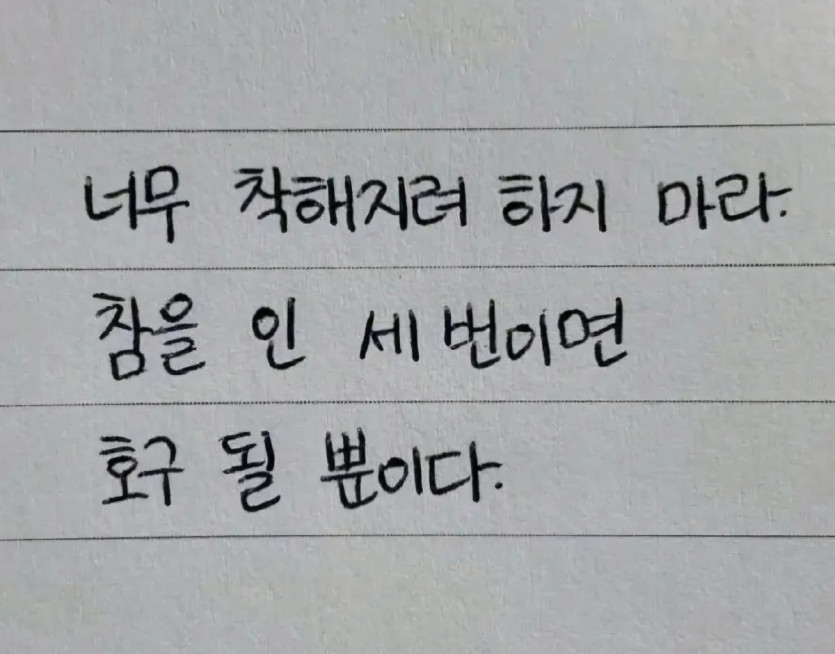 너무 착해지려 하지 마라.
참을 인 세 번이면
호구 될 뿐이다.